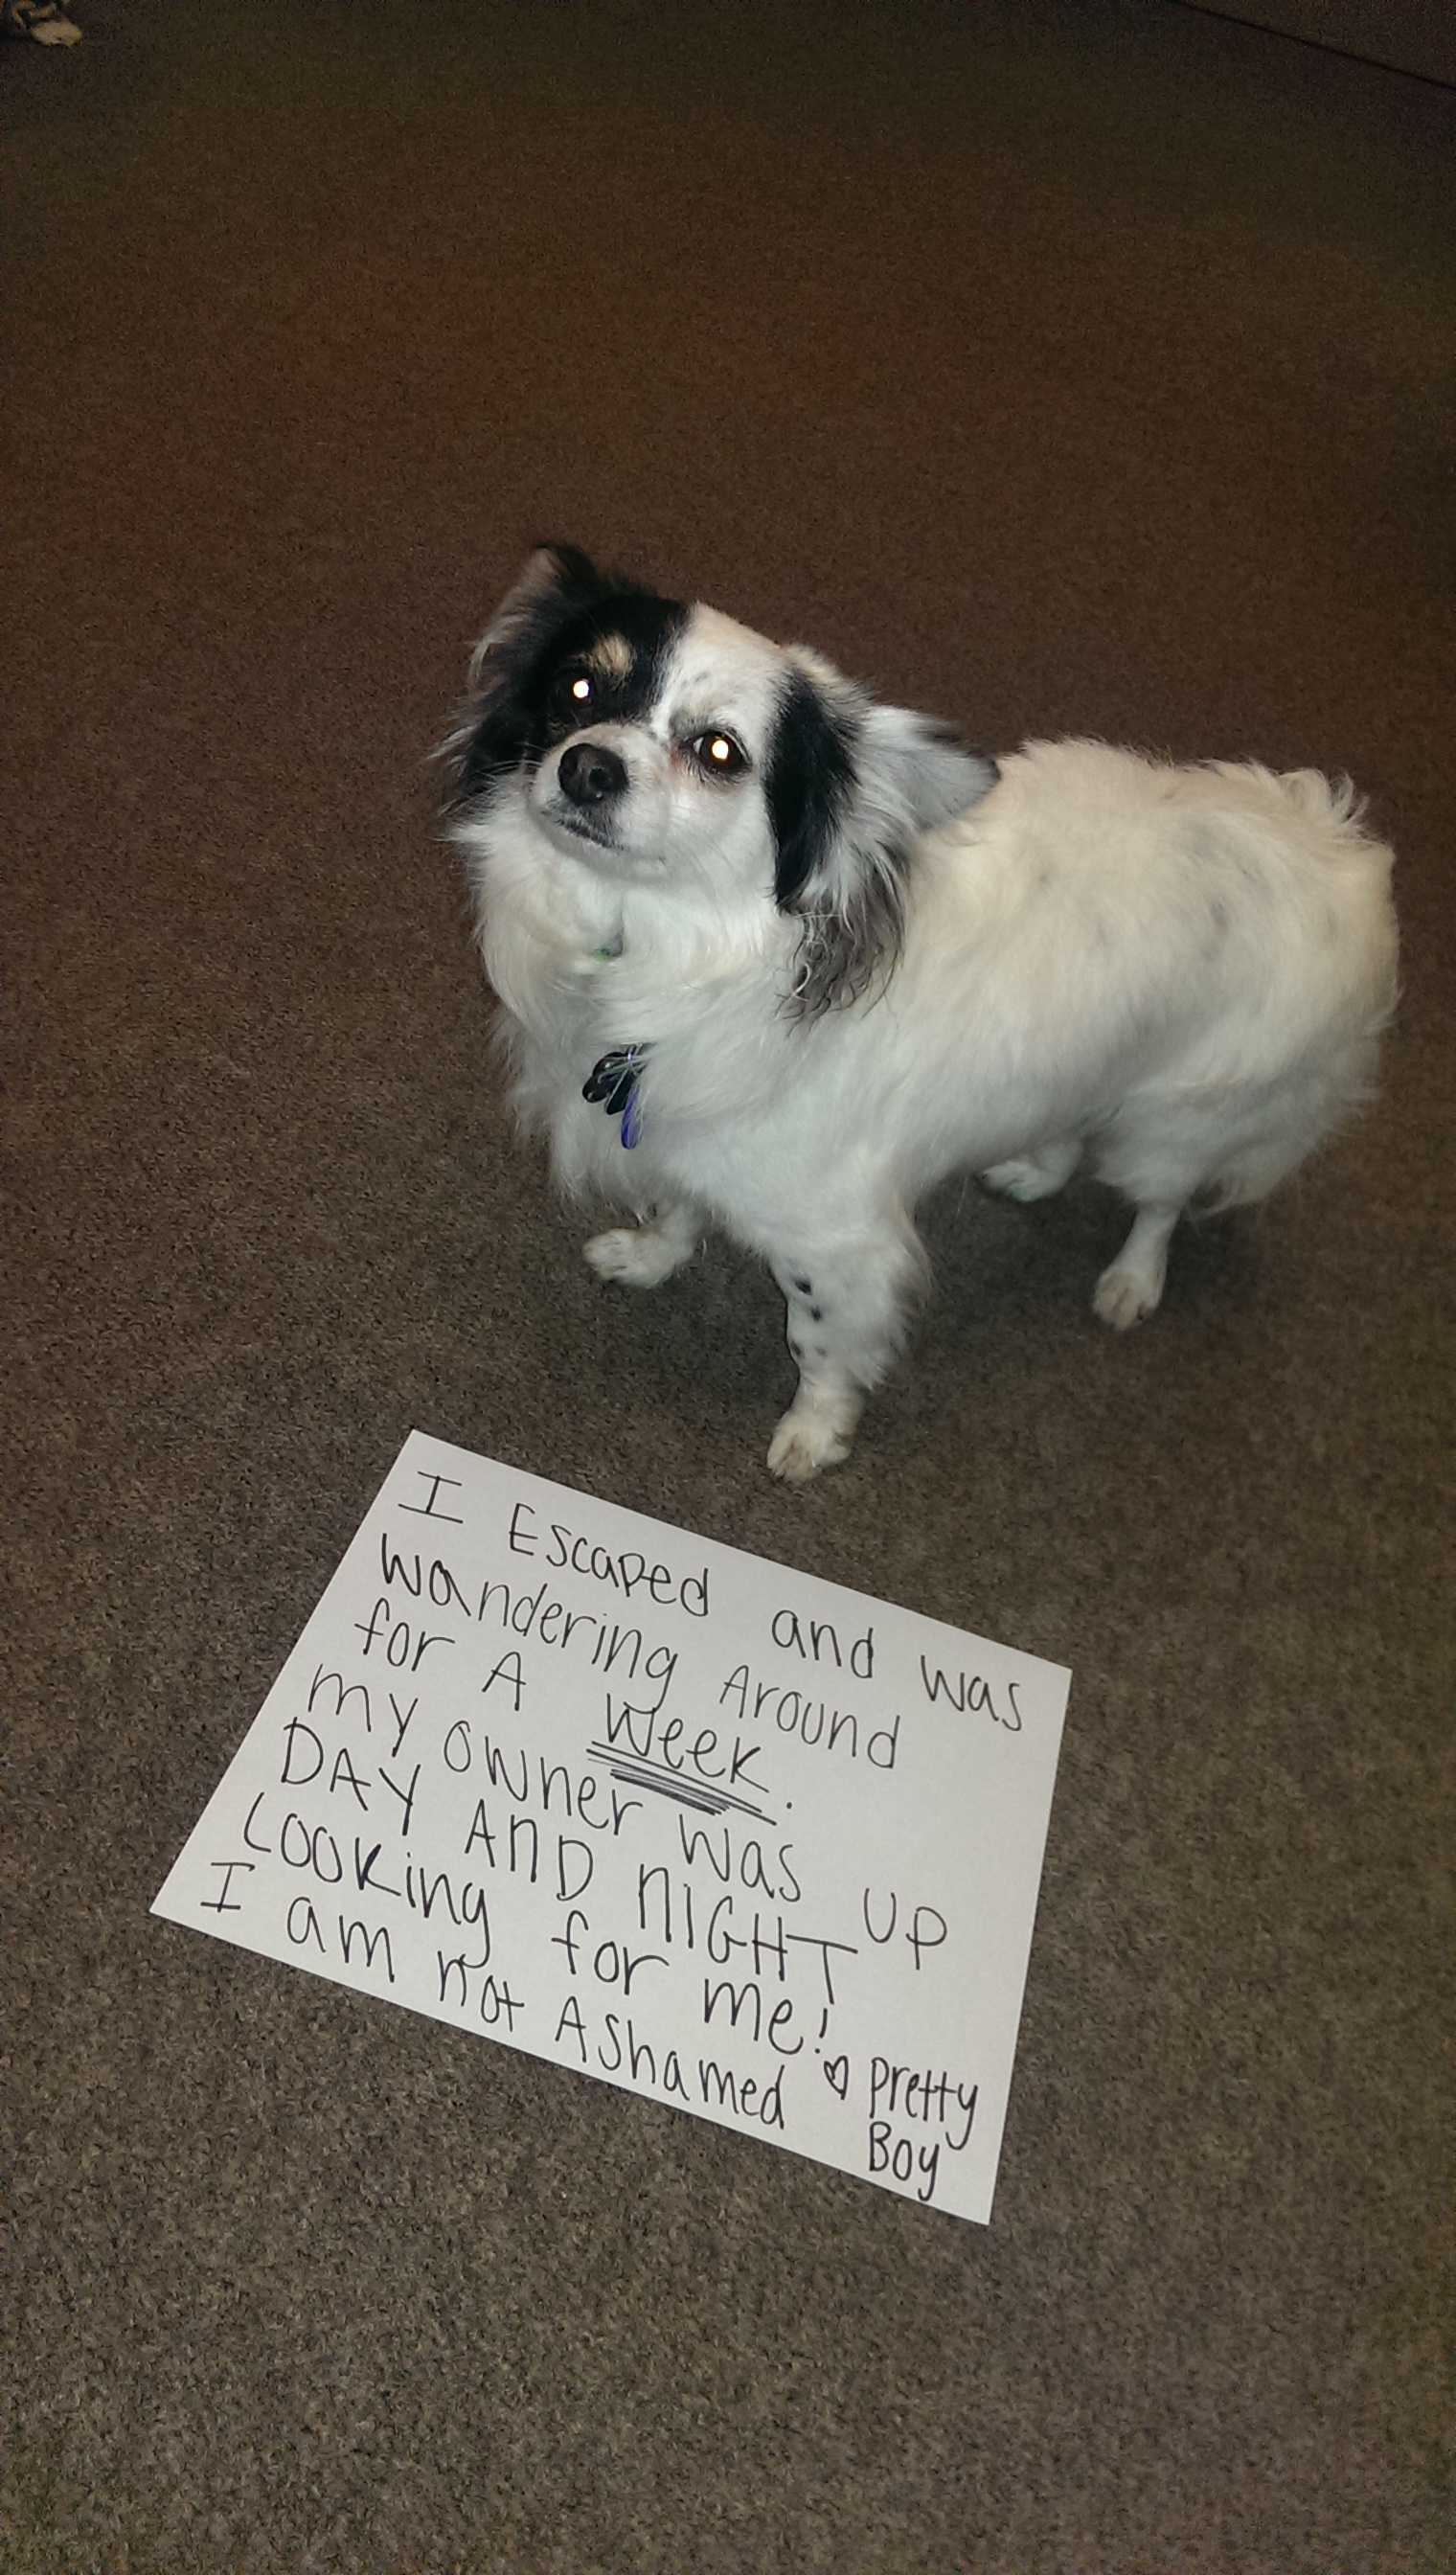 I Escaped and was
wandering Around
for A week.
my owner was up
DAY AnD nIGHT
Looking for me!
I am not AShamed
♡ pretty
Boy